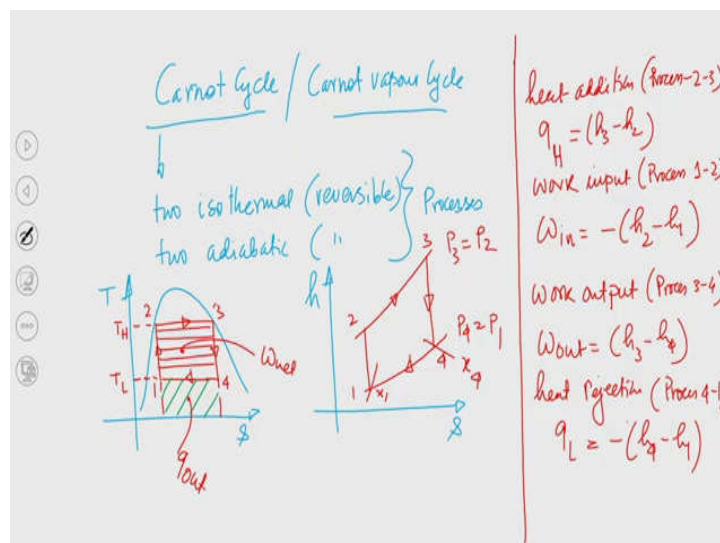 Carnot Cycle / Carnot vapour Cycle
two isothermal (reversible)
two adiabatic ( " )
Processes
T
T_H
T_L
2
3
1
4
W_net
S
q_out
h
3 P_3 = P_2
2
P_4 = P_1
4
x_4
1
x_1
S
heat addition (Process-2-3)
q_H = (h_3 - h_2)
work input (Process 1-2)
W_in = -(h_2 - h_1)
Work output (Process 3-4)
W_out = (h_3 - h_4)
heat rejection (Process 4-1
q_L = -(h_4 - h_1)